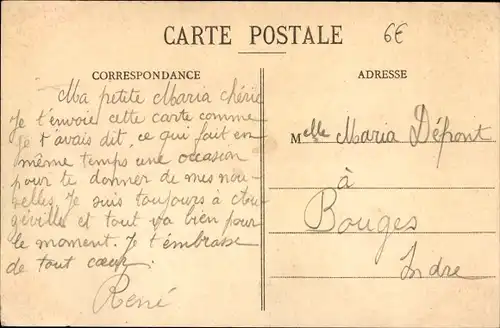 CARTE POSTALE
6€
CORRESPONDANCE
Ma petite Maria chérie
Je t'envoie cette carte comme
je t'avais dit, ce qui fait en
même temps une occasion
pour te donner de mes nou-
velles. Je suis toujours à
et tout va bien pour
le moment. Je t'embrasse
de tout cœur.
René
ADRESSE
Melle Maria Dépont
à
Bouges
Indre